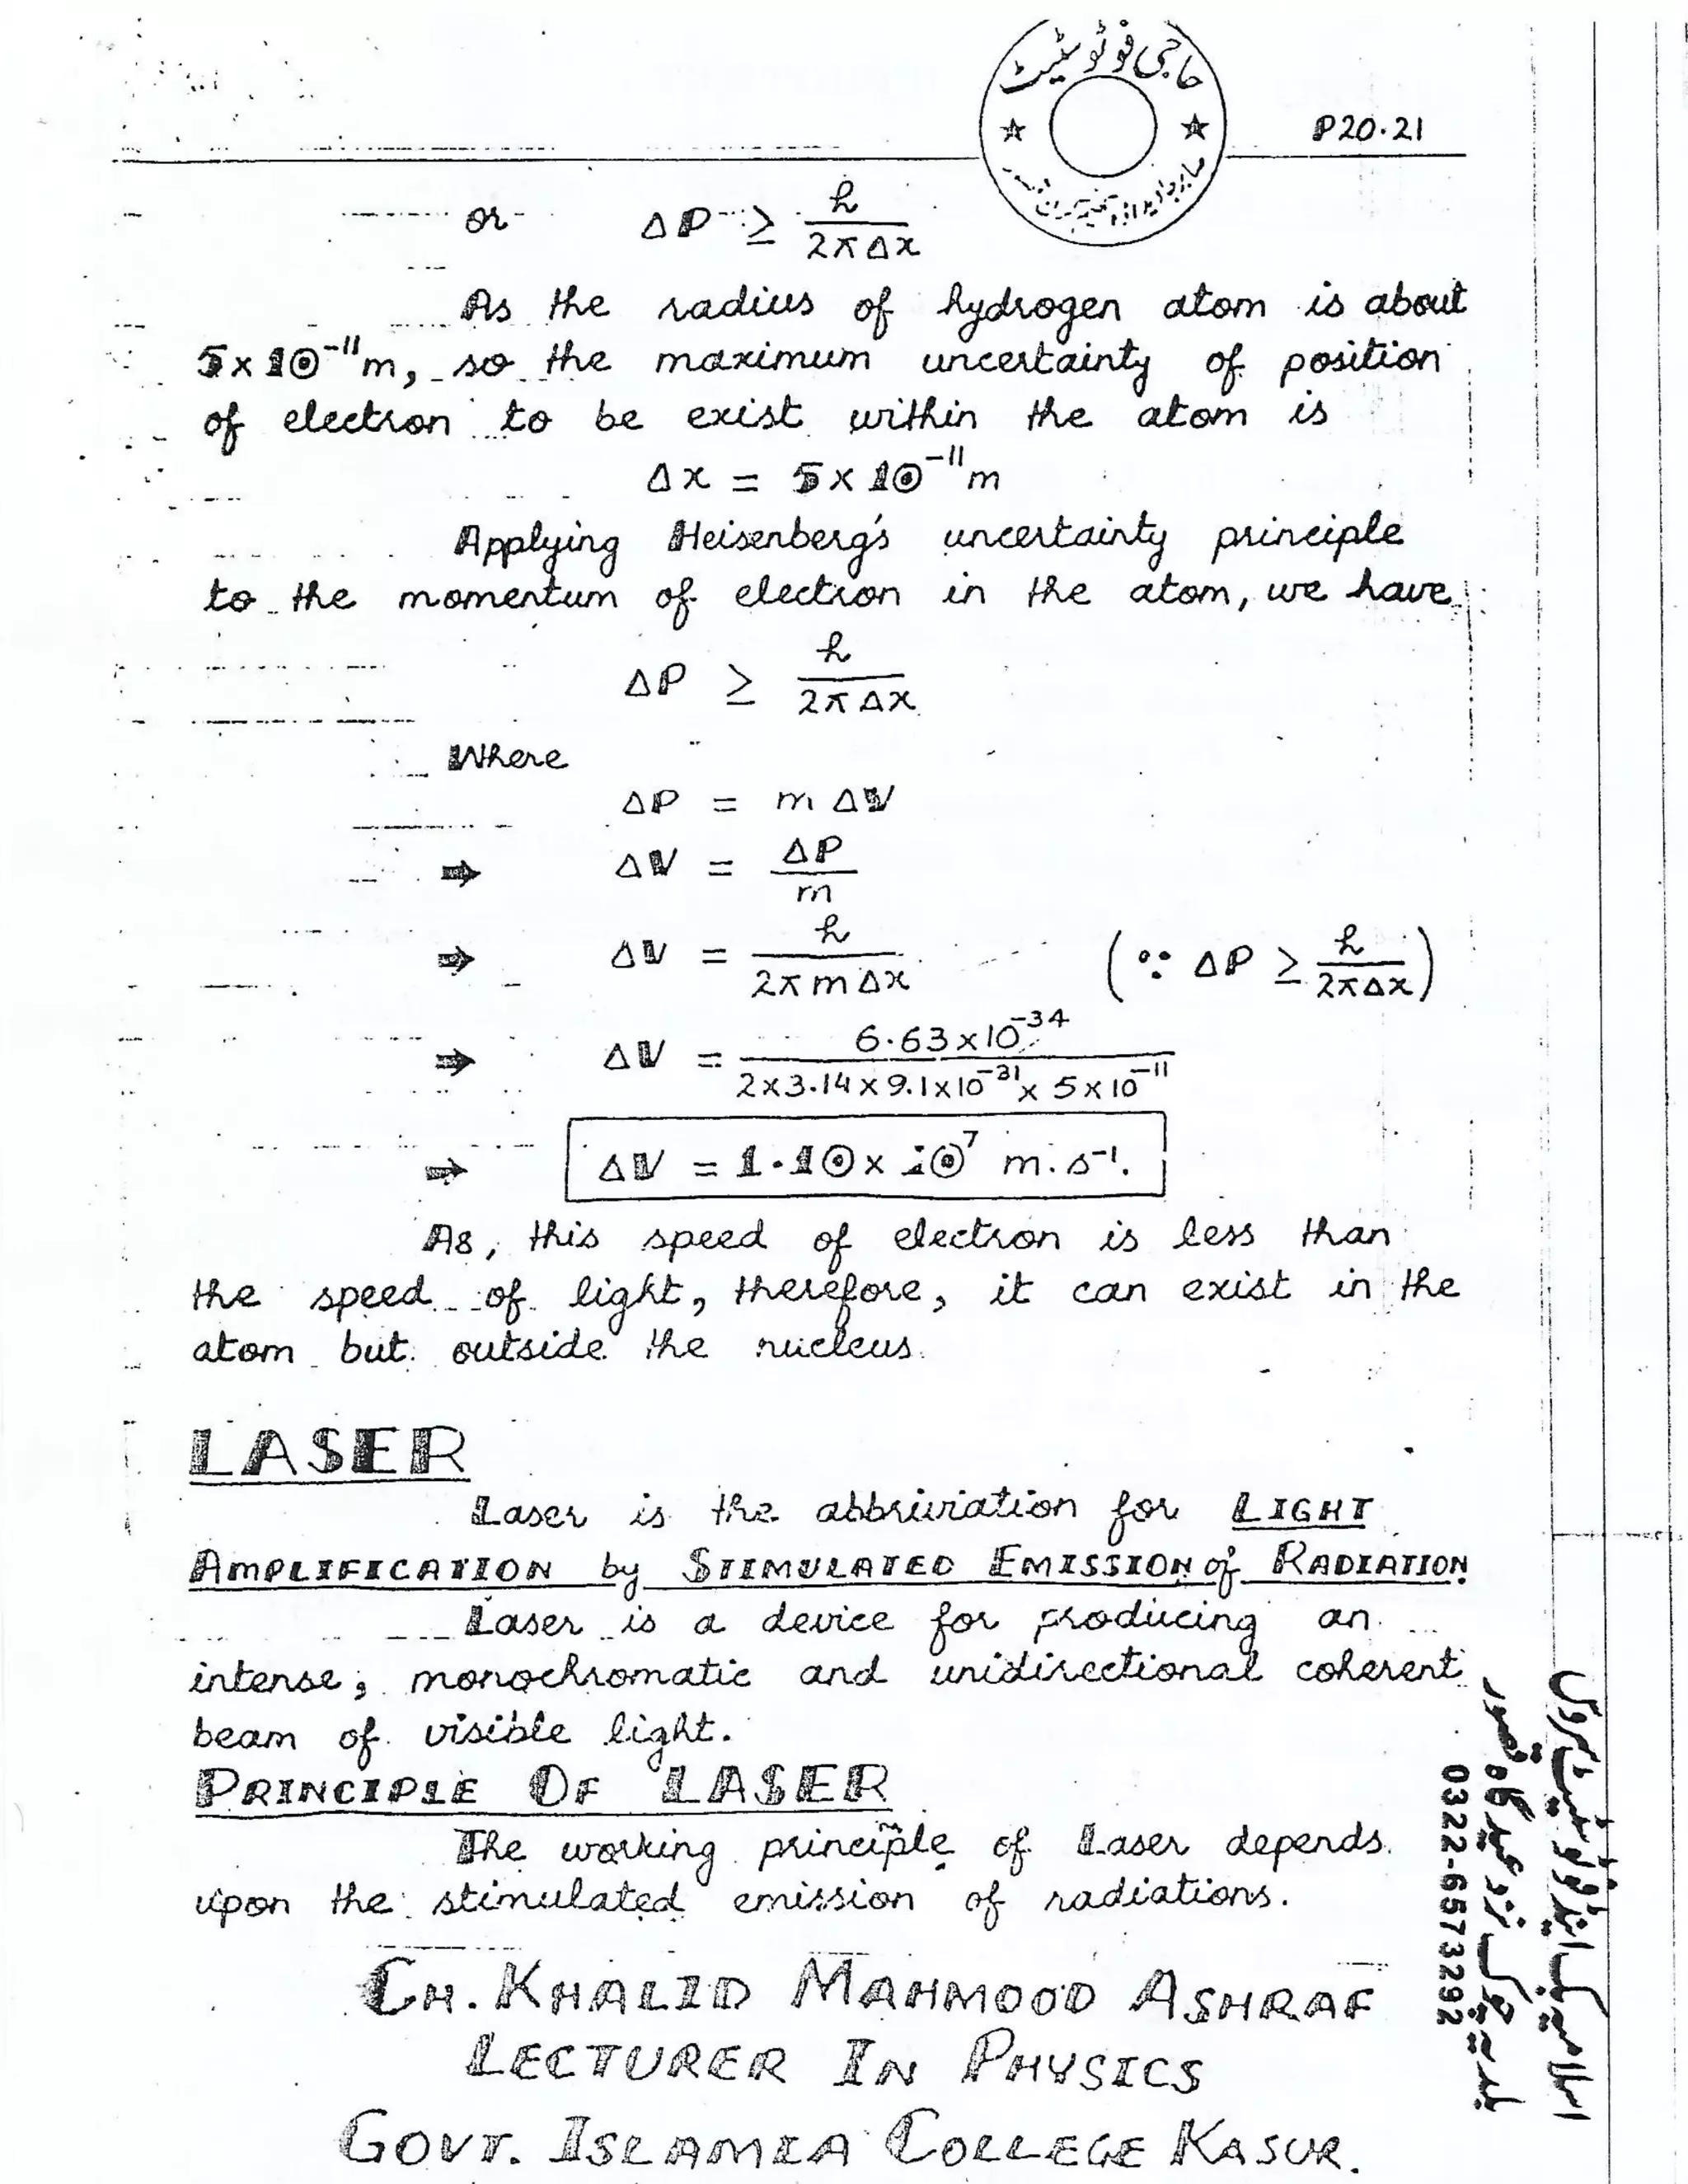 حاجی فوٹو سٹیٹ
P20.21
or ΔP ≥ h / 2πΔx
As the radius of hydrogen atom is about
5×10⁻¹¹m, so the maximum uncertainty of position
of electron to be exist within the atom is
Δx = 5×10⁻¹¹m
Applying Heisenberg's uncertainty principle
to the momentum of electron in the atom, we have
ΔP ≥ h / 2πΔx
Where
ΔP = m ΔV
⇒ ΔV = ΔP / m
⇒ ΔV = h / 2πmΔx (∵ ΔP ≥ h / 2πΔx)
⇒ ΔV = 6.63×10⁻³⁴ / 2×3.14×9.1×10⁻³¹× 5×10⁻¹¹
⇒ ΔV = 1.10×10⁷ m.s⁻¹.
As, this speed of electron is less than
the speed of light, therefore, it can exist in the
atom but outside the nucleus.
LASER
Laser is the abbriviation for LIGHT
AMPLIFICATION by STIMULATED EMISSION of RADIATION
Laser is a device for producing an
intense, monochromatic and unidirectional coherent
beam of visible light.
PRINCIPLE OF LASER
The working principle of Laser depends
upon the stimulated emission of radiations.
CH. KHALID MAHMOOD ASHRAF
LECTURER IN PHYSICS
GOVT. ISLAMIA COLLEGE KASUR.
اسلامیہ بک اینڈ فوٹو سٹیٹ سروس
بلدیہ چوک نزد عید گاہ قصور
0322-6573292